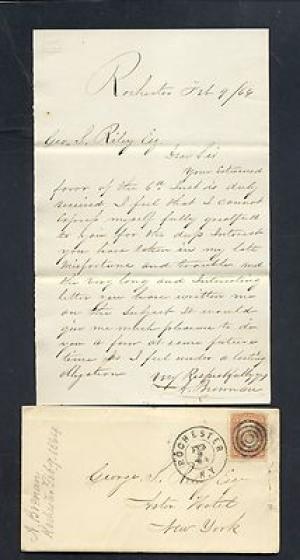 Rochester Feb 9/64
Geo. S. Riley Esq
Dear Sir
Your esteemed
favor of the 6th Inst is duly
received I feel that I cannot
express myself fully grateful
to you for the deep Interest
you have taken in my late
Misfortune and trouble and
the very long and Interesting
letter you have written me
on the Subject It would
give me much pleasure to do
you a favor at some future
time as I feel under a lasting
obligation
Very Respectfully yrs
A. Brennan
ROCHESTER
N.Y.
George S. Esq
Astor Hotel
New York
A. Brennan
Rochester Feb 9, 1864